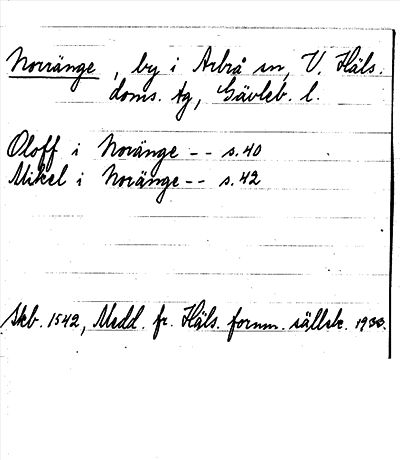 Norränge, by i Arbrå sn, V. Häls.
doms. tg, Gävleb. l.
Oloff i Noränge -- s. 40
Mikel i Noränge -- s. 42
Skb. 1542, Medd. fr. Häls. fornm. sällsk. 1933.